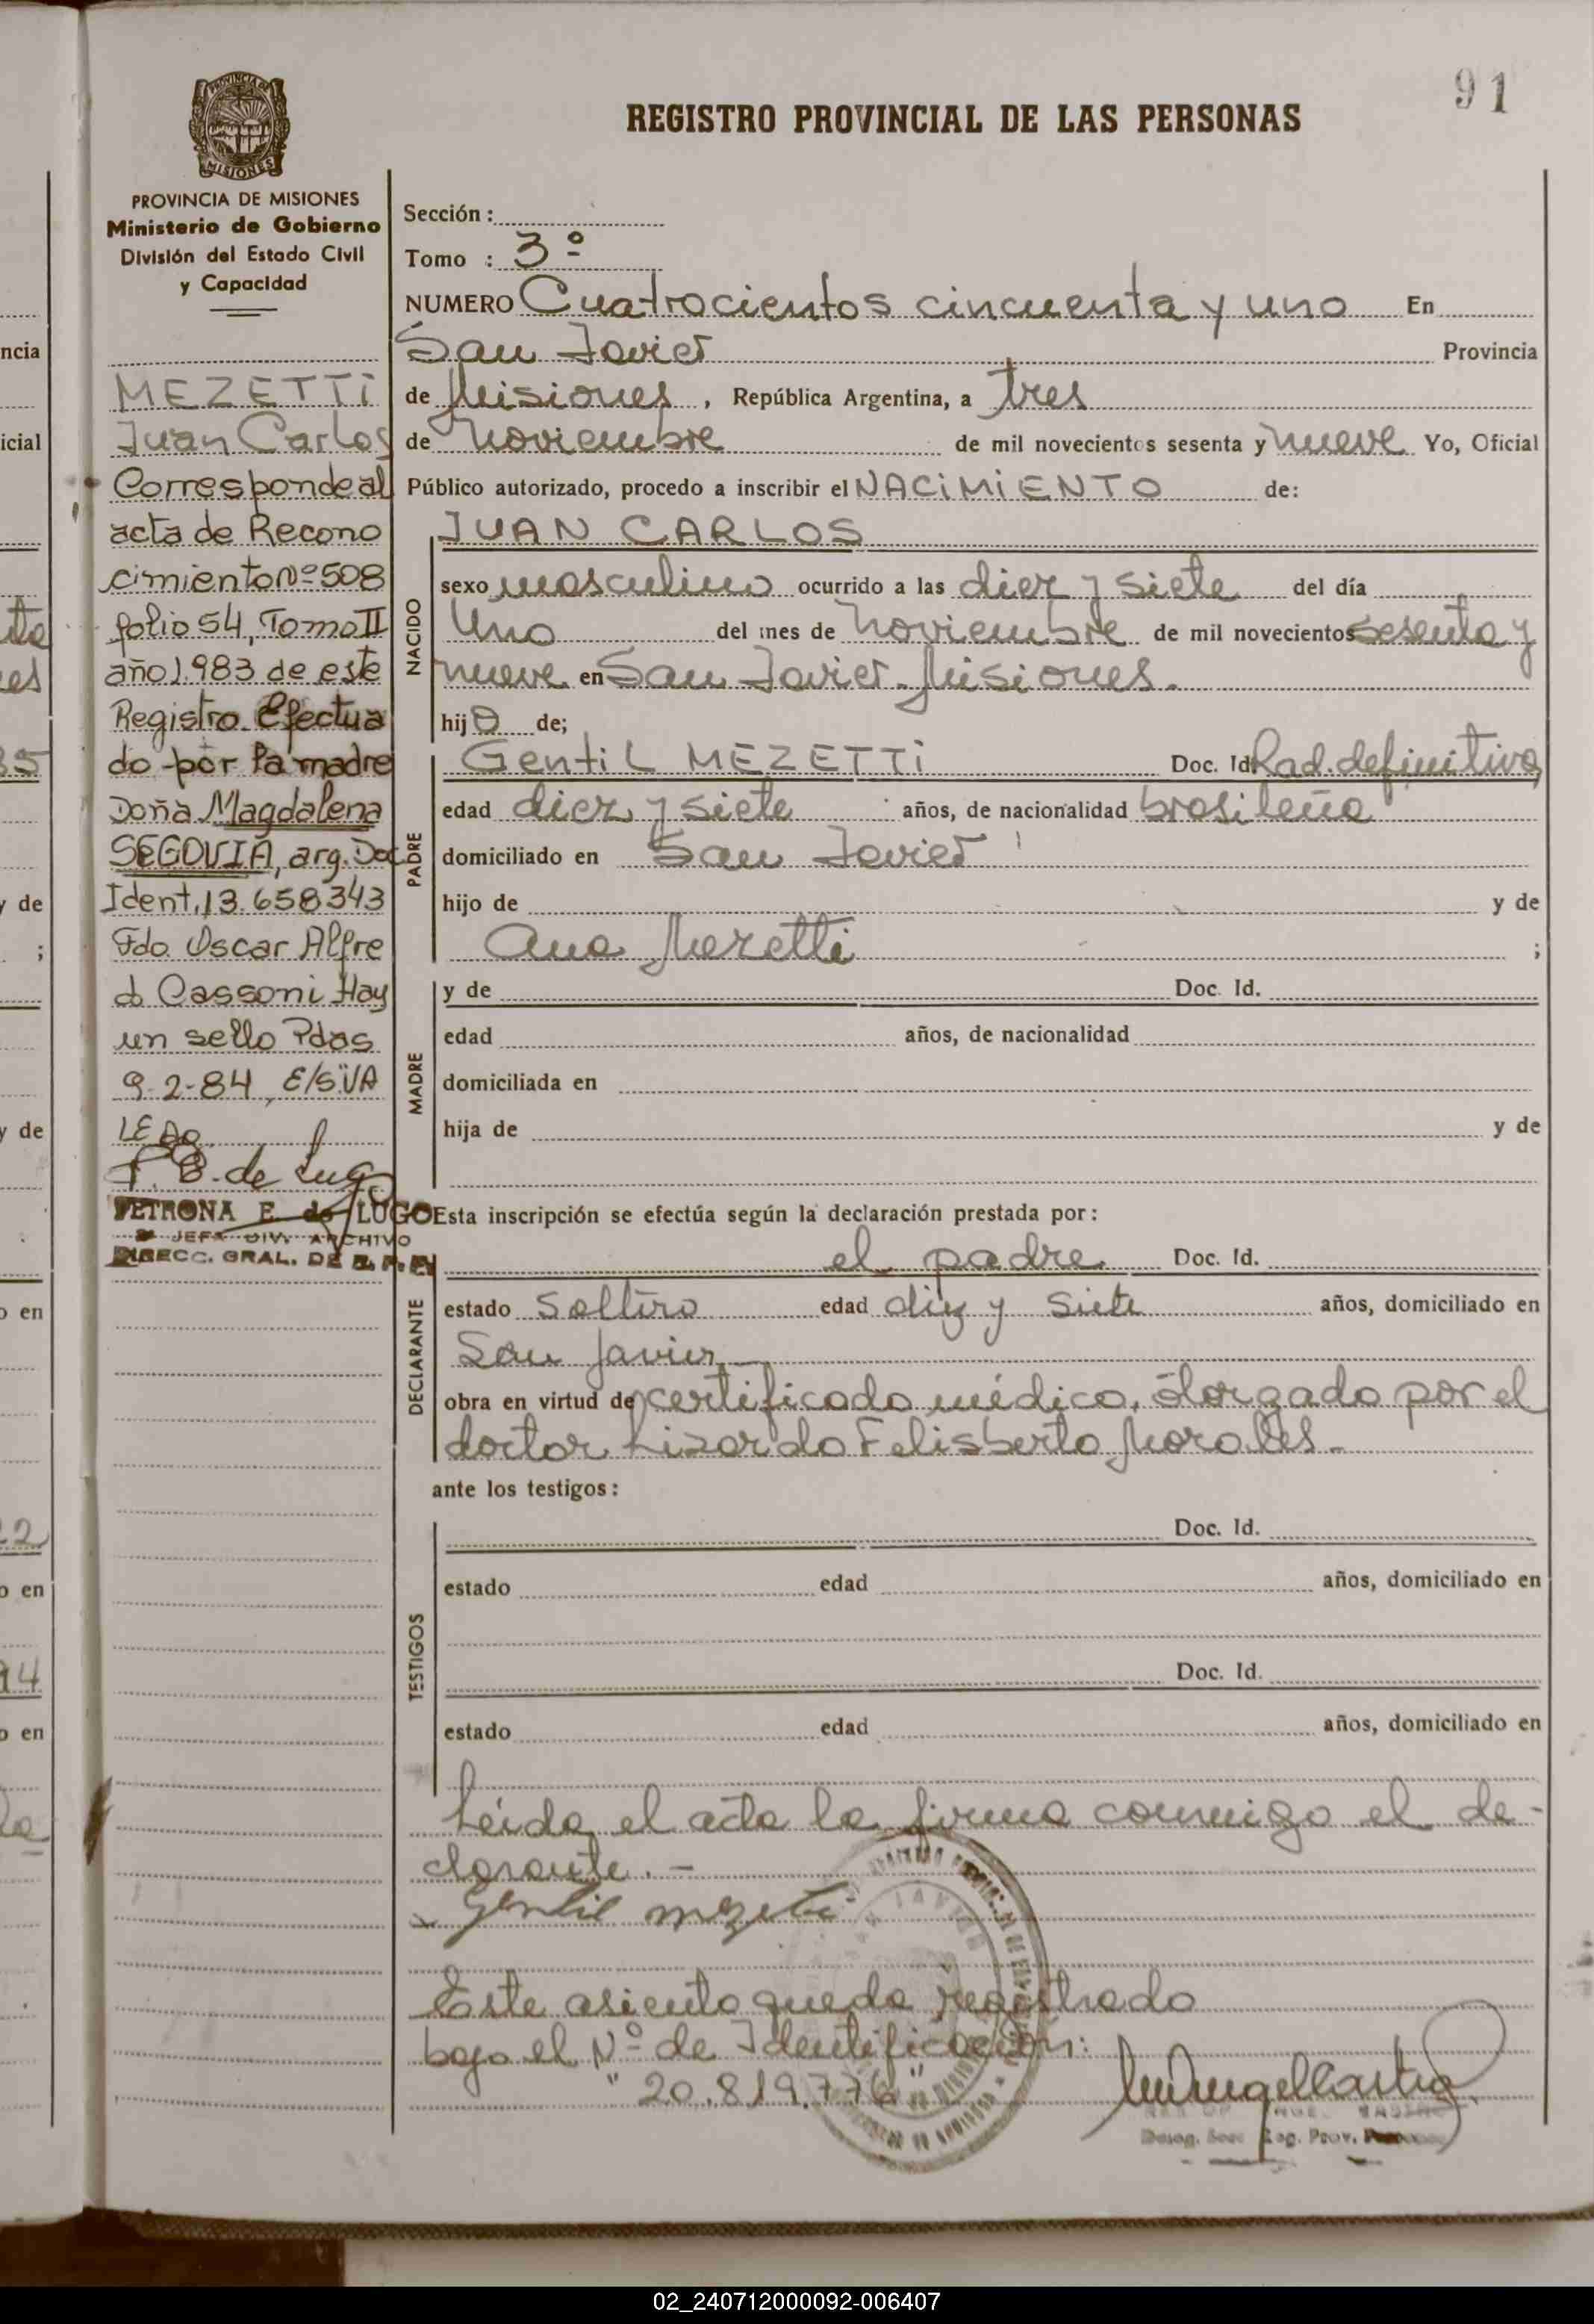 91
REGISTRO PROVINCIAL DE LAS PERSONAS
PROVINCIA DE MISIONES
Ministerio de Gobierno
División del Estado Civil
y Capacidad
MEZETTi
Juan Carlos
Corresponde al
acta de Recono
cimiento Nº 508
folio 54, Tomo II
año 1.983 de este
Registro. Efectua
do por la madre
Doña Magdalena
SEGOVIA, arg. Doc
Ident. 13.658343
Fdo Oscar Alfre
do Cassoni Hay
un sello Pdas
9-2-84, E/S:VA
LE
P. E. de Lugo
PETRONA E. de LUGO
JEFA DIV. ARCHIVO
DIRECC. GRAL. DE R. P. P.
Sección :
Tomo : 3º
NUMERO Cuatrocientos cincuenta y uno En
San Javier Provincia
de Misiones, República Argentina, a tres
de noviembre de mil novecientos sesenta y nueve Yo, Oficial
Público autorizado, procedo a inscribir el NACiMiENTO de:
NACIDO
JUAN CARLOS
sexo masculino ocurrido a las diez y siete del día
Uno del mes de noviembre de mil novecientos sesenta y
nueve en San Javier-Misiones.
hijo de;
PADRE
GentiL MEZETTi Doc. Id Rad. definitiva
edad diez y siete años, de nacionalidad brasileña
domiciliado en San Javier
hijo de y de
Ana Mezetti ;
MADRE
y de Doc. Id.
edad años, de nacionalidad
domiciliada en
hija de y de
Esta inscripción se efectúa según la declaración prestada por:
DECLARANTE
el padre Doc. Id.
estado Soltero edad diez y siete años, domiciliado en
San Javier
obra en virtud de certificado médico, otorgado por el
doctor Lizardo Felisberto Morales.
ante los testigos:
TESTIGOS
Doc. Id.
estado edad años, domiciliado en
Doc. Id.
estado edad años, domiciliado en
Leída el acta la firma conmigo el de-
clarante.-
Gentil mezeti
Este asiento queda registrado
bajo el Nº de Identificación:
"20.819.776"
Deleg. Secc. Reg. Prov. Personas
ncia
icial
y de
;
y de
o en
22
o en
14
o en
02_240712000092-006407